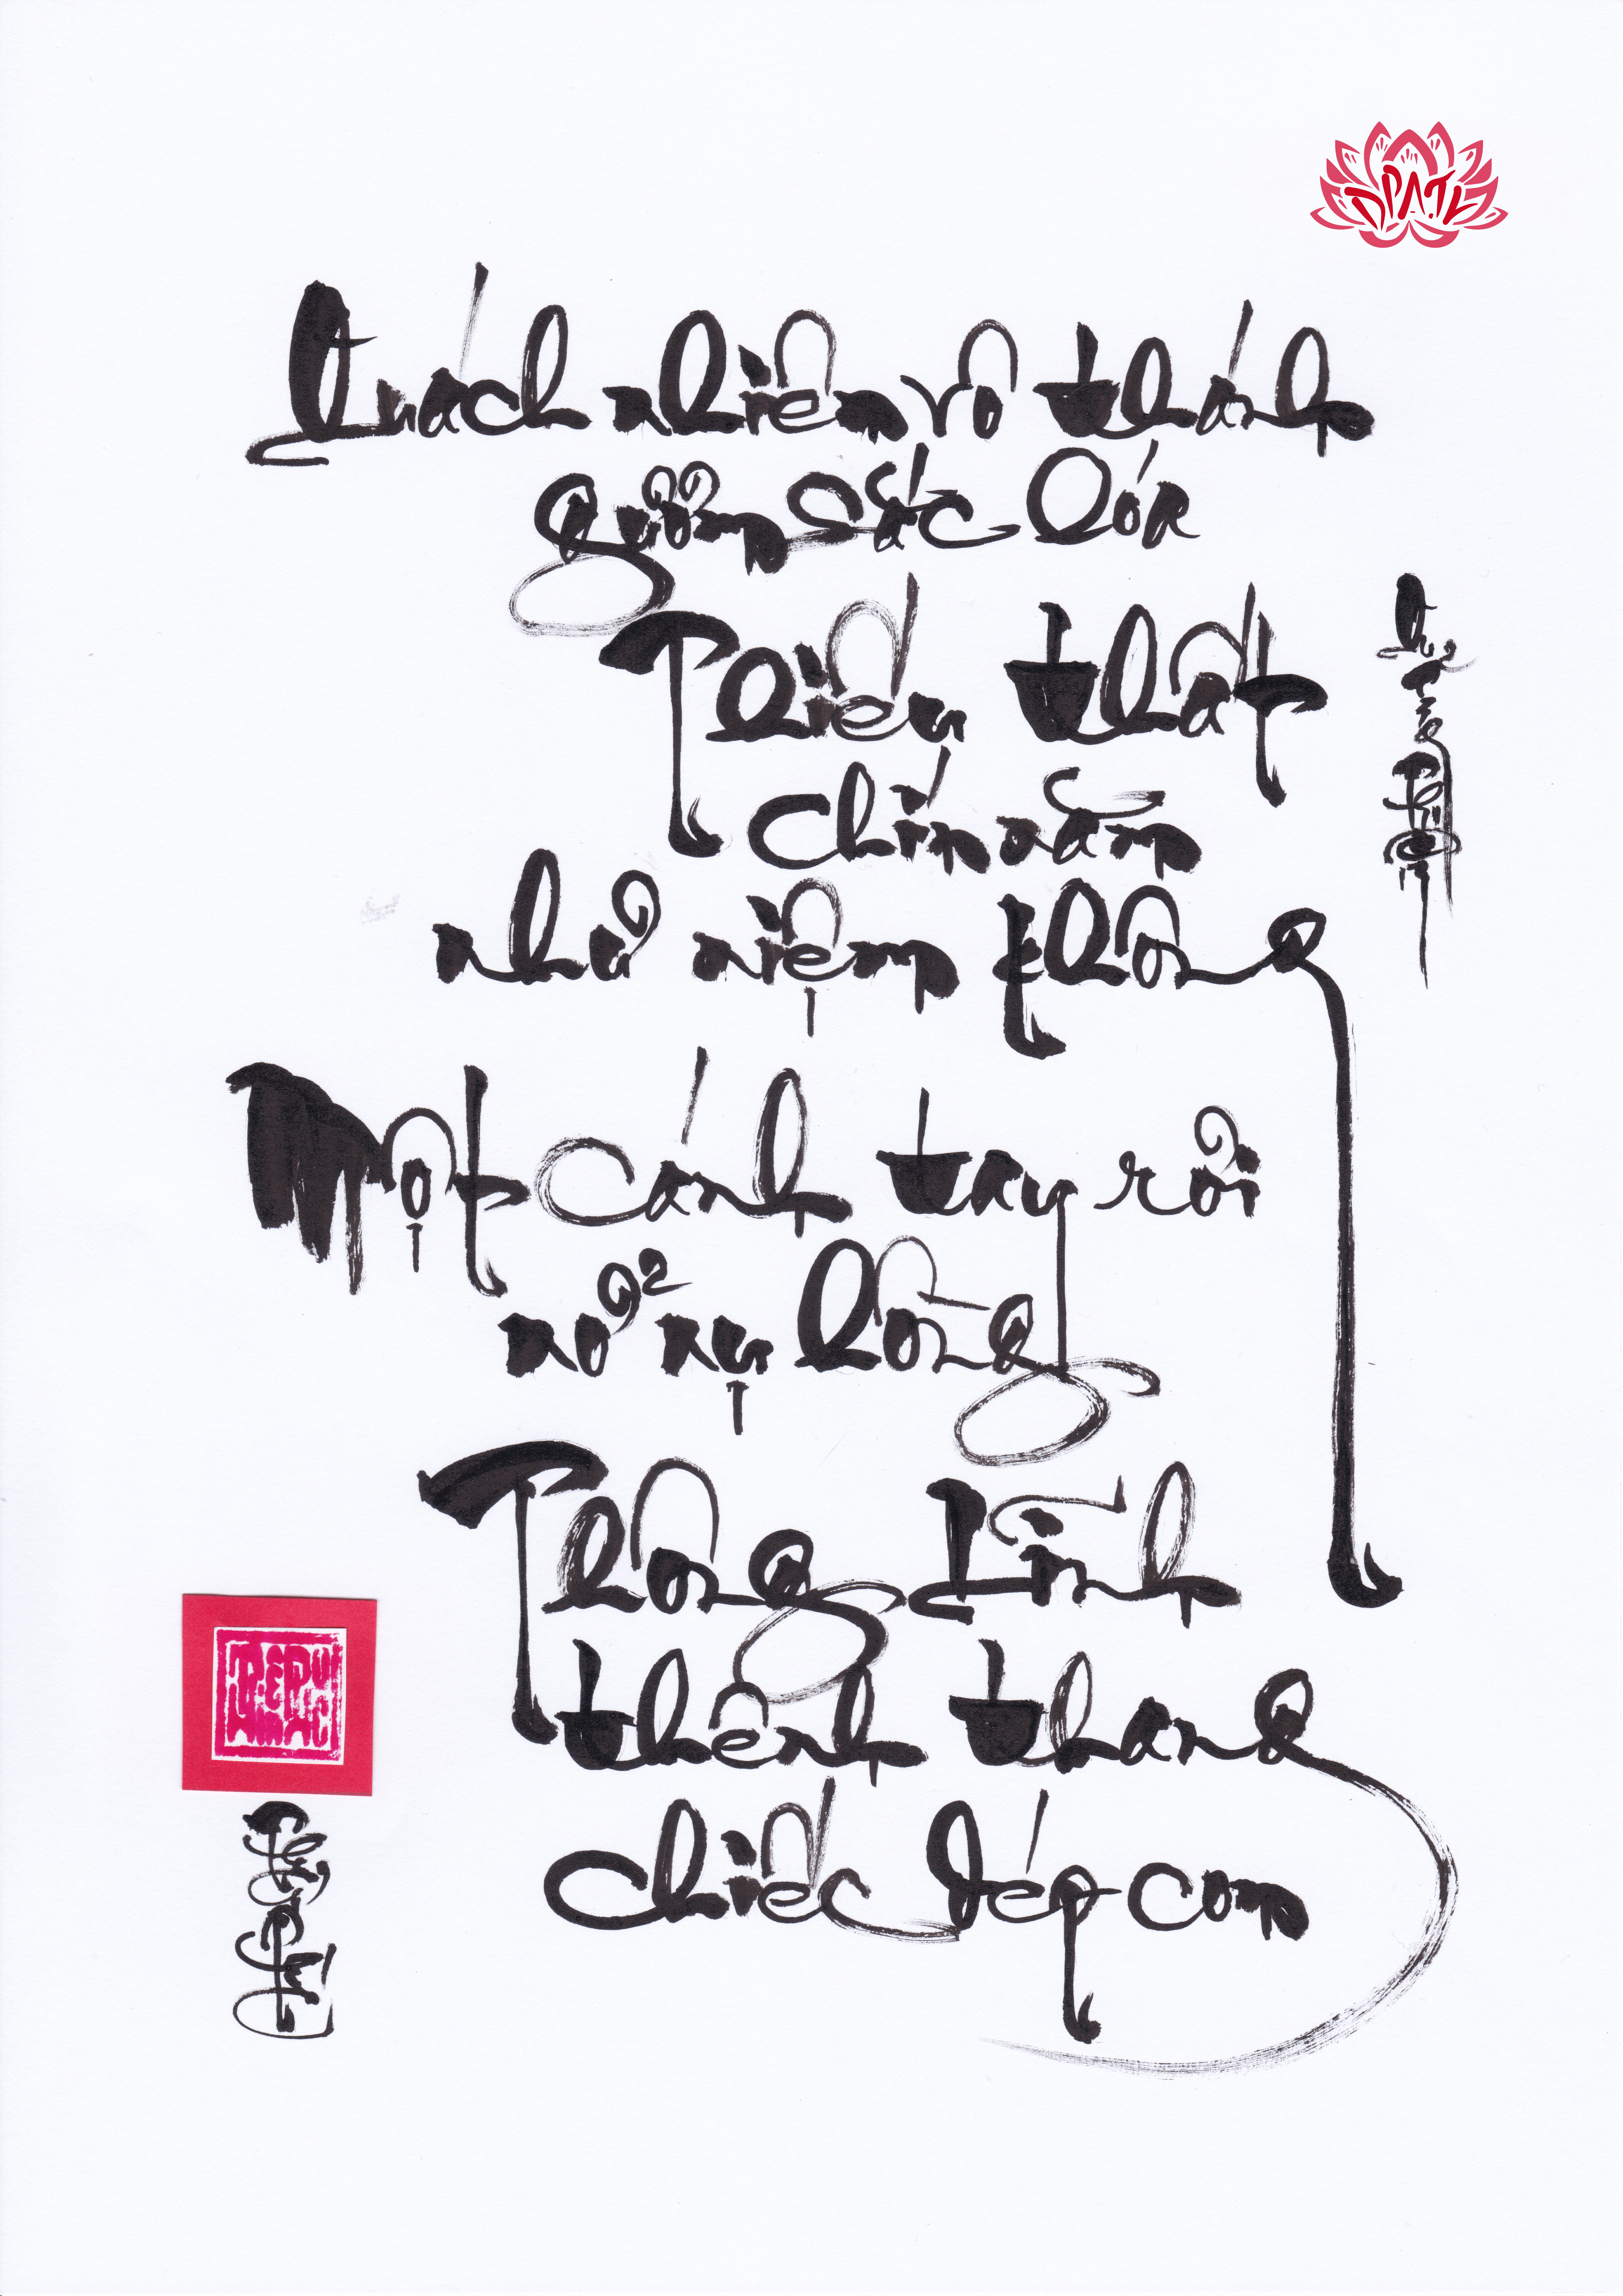 DPATL
Quách nhiên vô thánh
gươm sắc lóa
Thiếu thất
chín năm
như niệm không
Một cánh tay rơi
nở nụ hồng
Thông Lĩnh
thênh thang
chiếc dép con